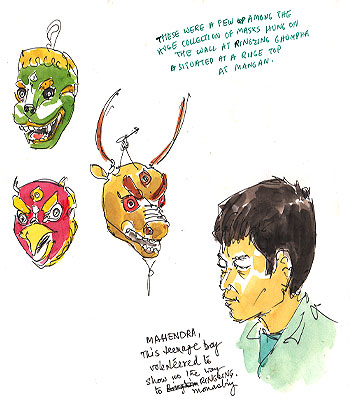 THESE WERE A FEW OF AMONG THE
HUGE COLLECTION OF MASKS HUNG ON
THE WALL AT RINGZING GHOMPHA
SITUATED AT A RIDGE TOP
AT MANGAN.
MAHENDRA,
This teenage boy
volenteered to
show us the way
to RINGZING.
monastry